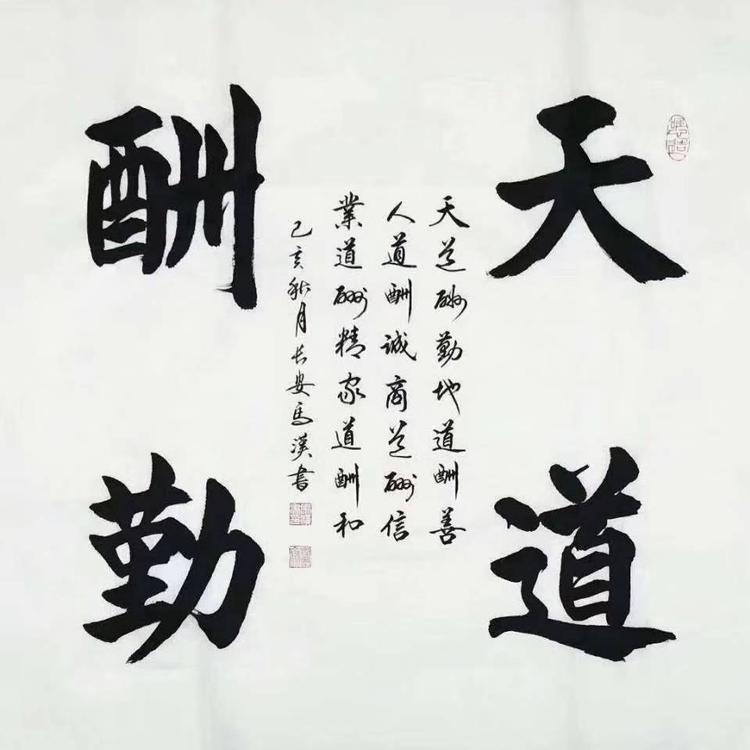 天道
酬勤
天道酬勤地道酬善
人道酬誠商道酬信
業道酬精家道酬和
己亥秋月长安馬漢書